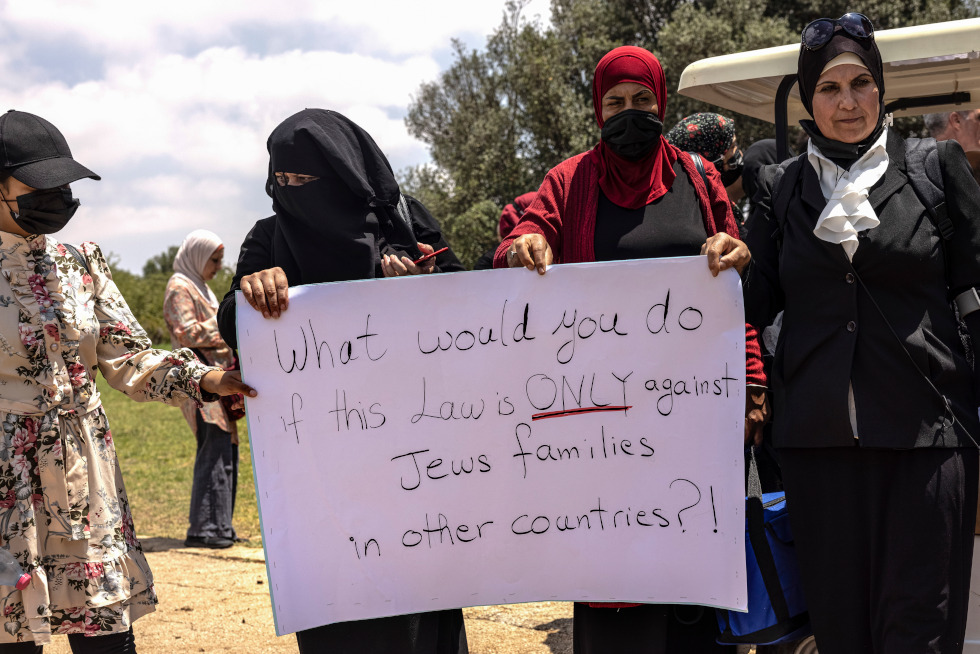 What would you do
if this Law is ONLY against
Jews families
in other countries?!